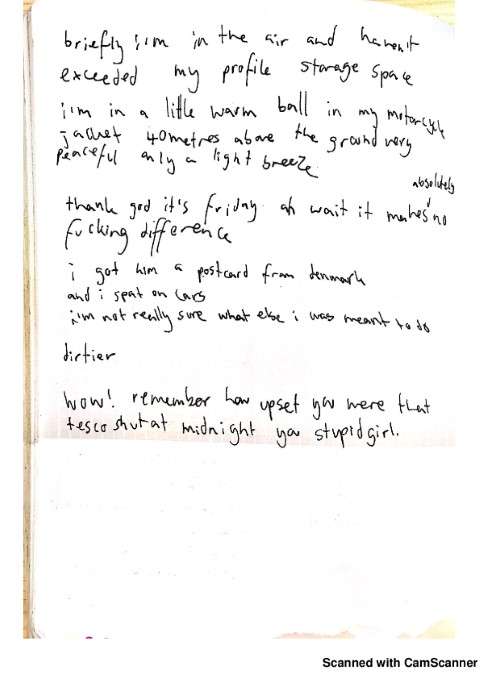 briefly i'm in the air and haven't
exceeded my profile storage space
i'm in a little warm ball in my motorcycle
jacket 40metres above the ground very
peaceful only a light breeze
absolutely
thank god it's friday oh wait it makes no
fucking difference
i got him a postcard from denmark
and i spat on cars
i'm not really sure what else i was meant to do
dirtier
wow! remember how upset you were that
tesco shut at midnight you stupid girl.
Scanned with CamScanner